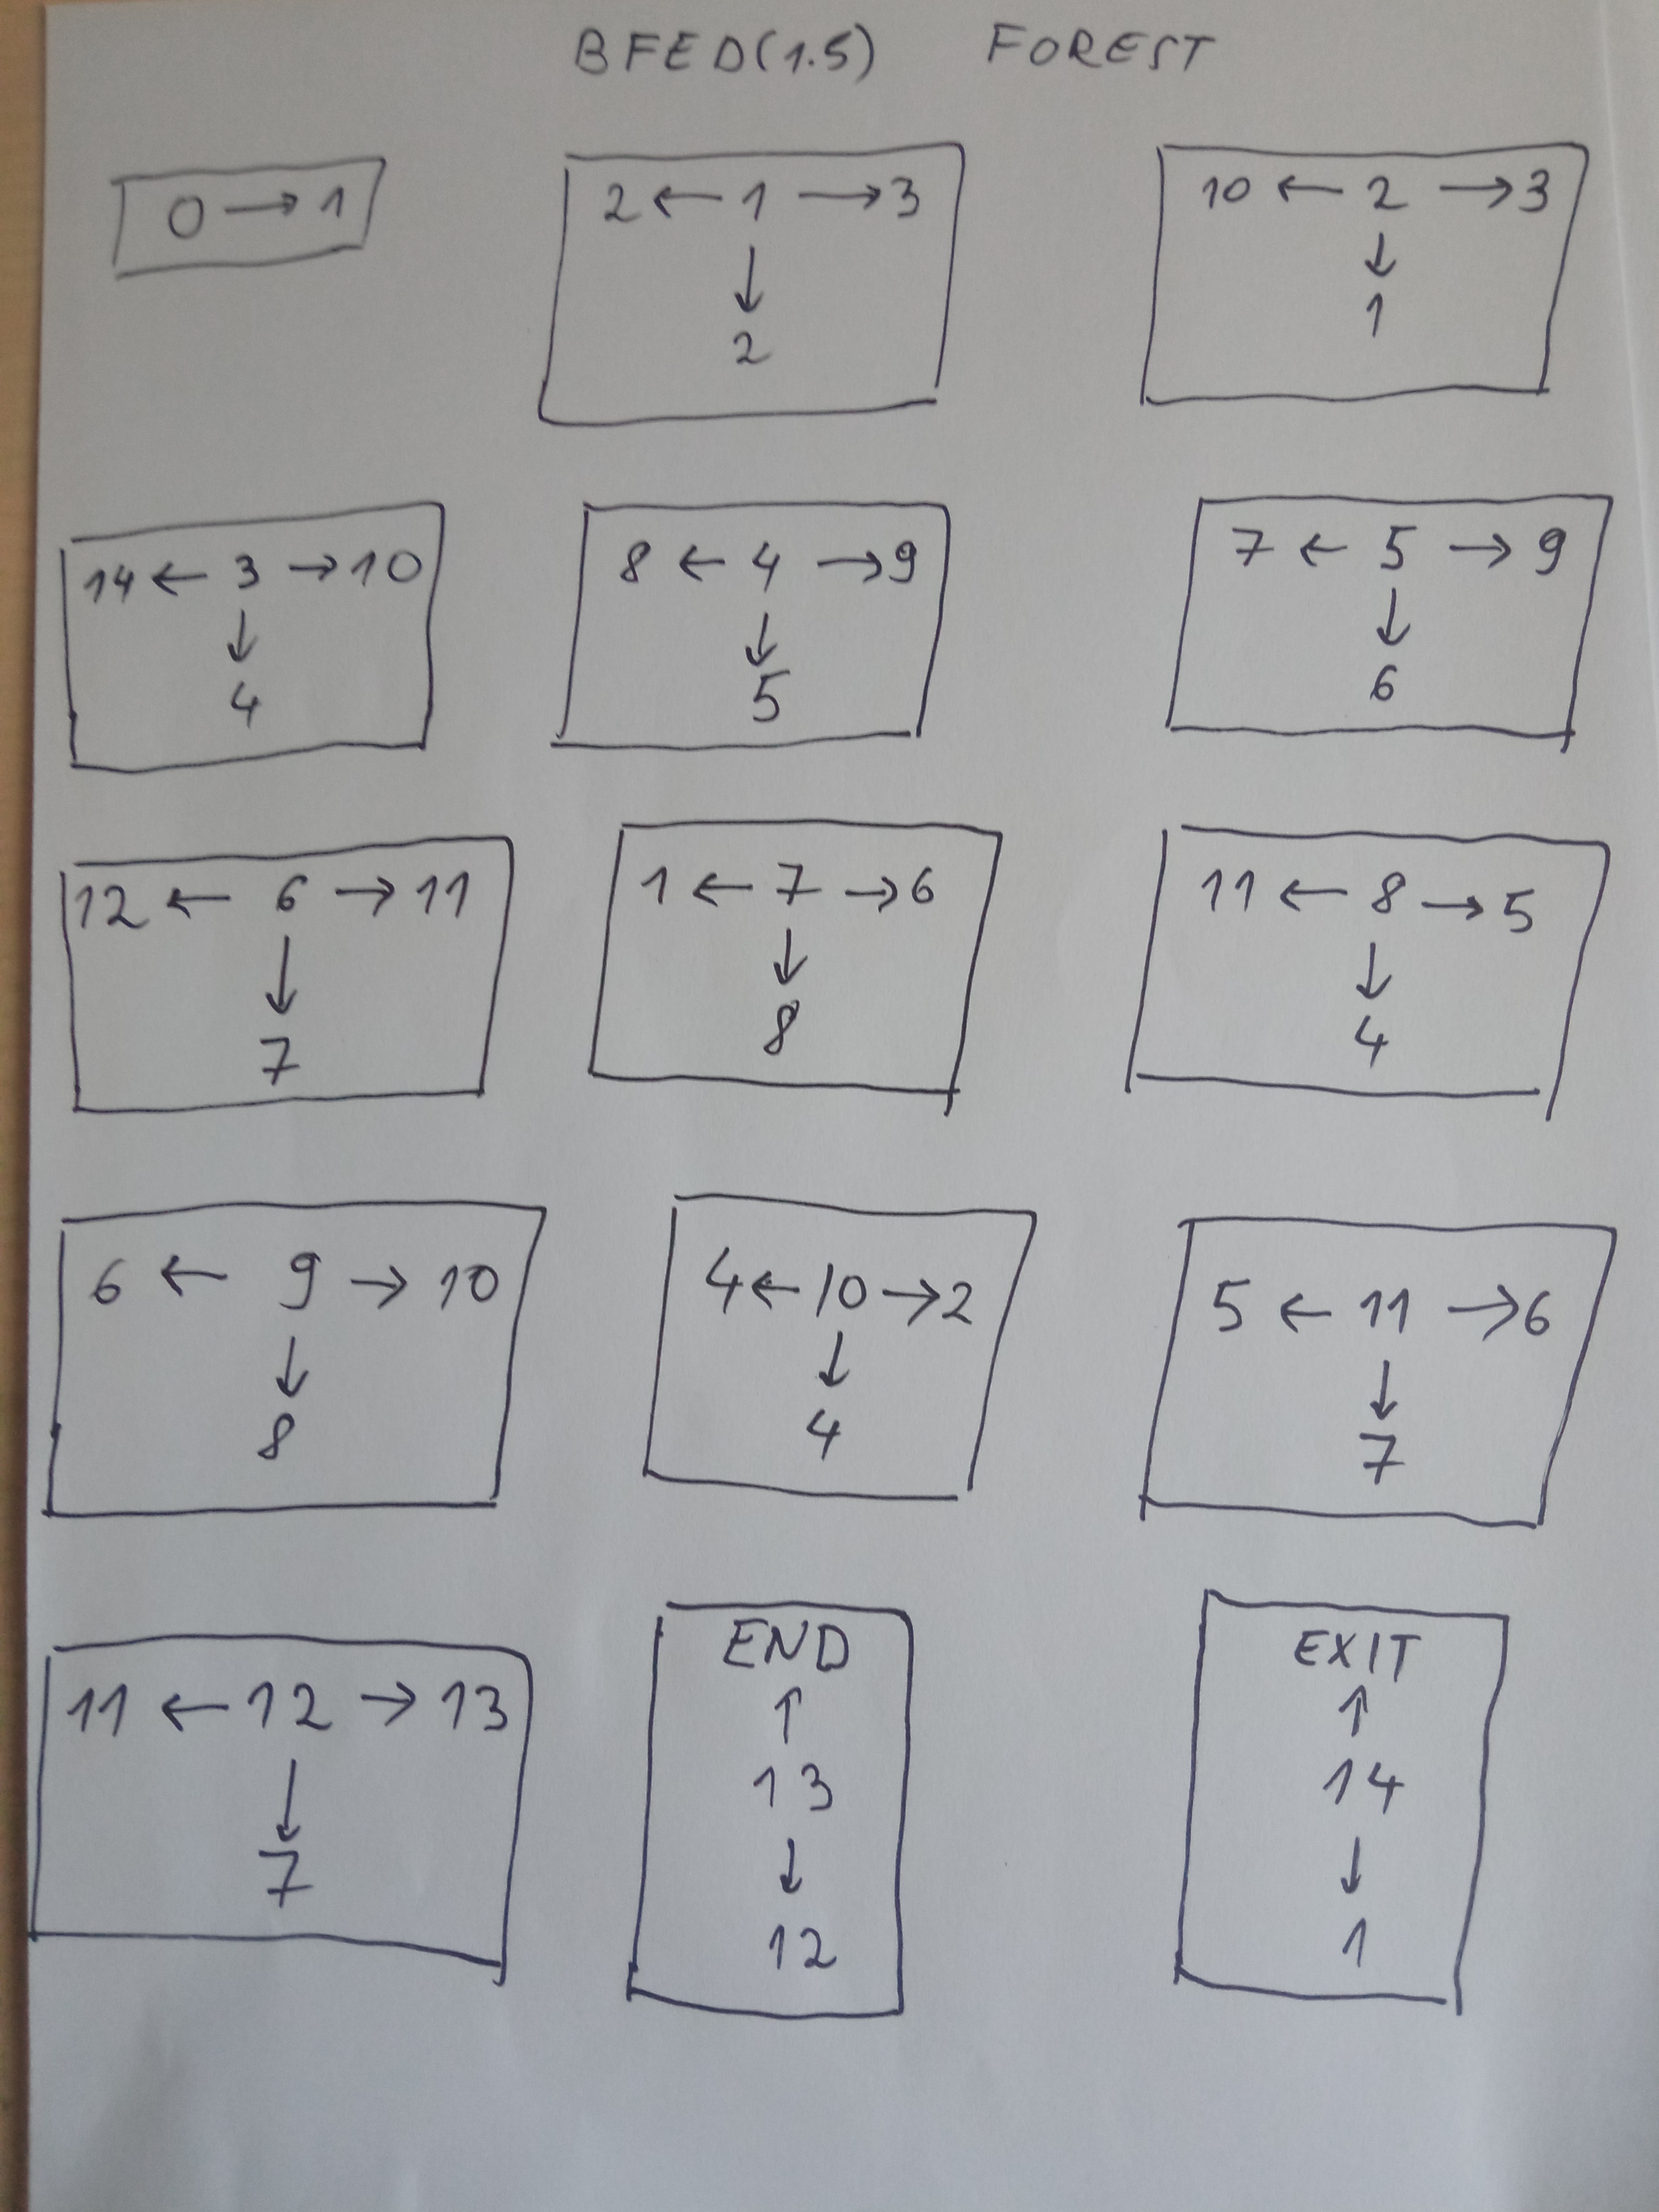 BFED(1.5) FOREST
0 → 1
2 ← 1 → 3
↓
2
10 ← 2 → 3
↓
1
14 ← 3 → 10
↓
4
8 ← 4 → 9
↓
5
7 ← 5 → 9
↓
6
12 ← 6 → 11
↓
7
1 ← 7 → 6
↓
8
11 ← 8 → 5
↓
4
6 ← 9 → 10
↓
8
4 ← 10 → 2
↓
4
5 ← 11 → 6
↓
7
11 ← 12 → 13
↓
7
END
↑
13
↓
12
EXIT
↑
14
↓
1